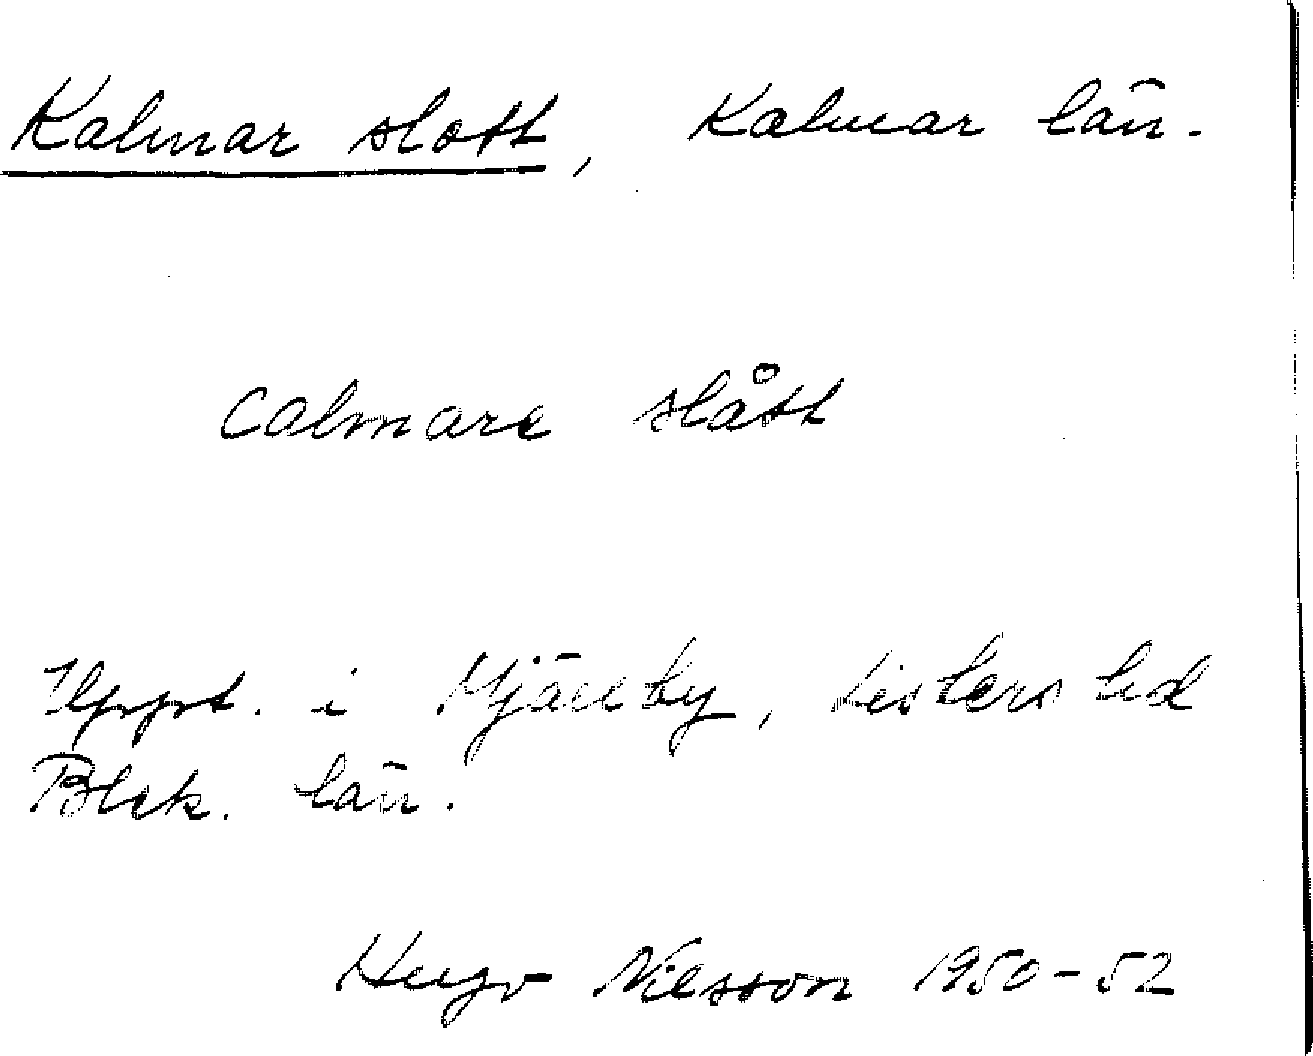 Kalmar slott, Kalmar län.
Calmare slått
Uppt. i Mjällby, Listers hd
Blek. län.
Hugo Nilsson 1950-52